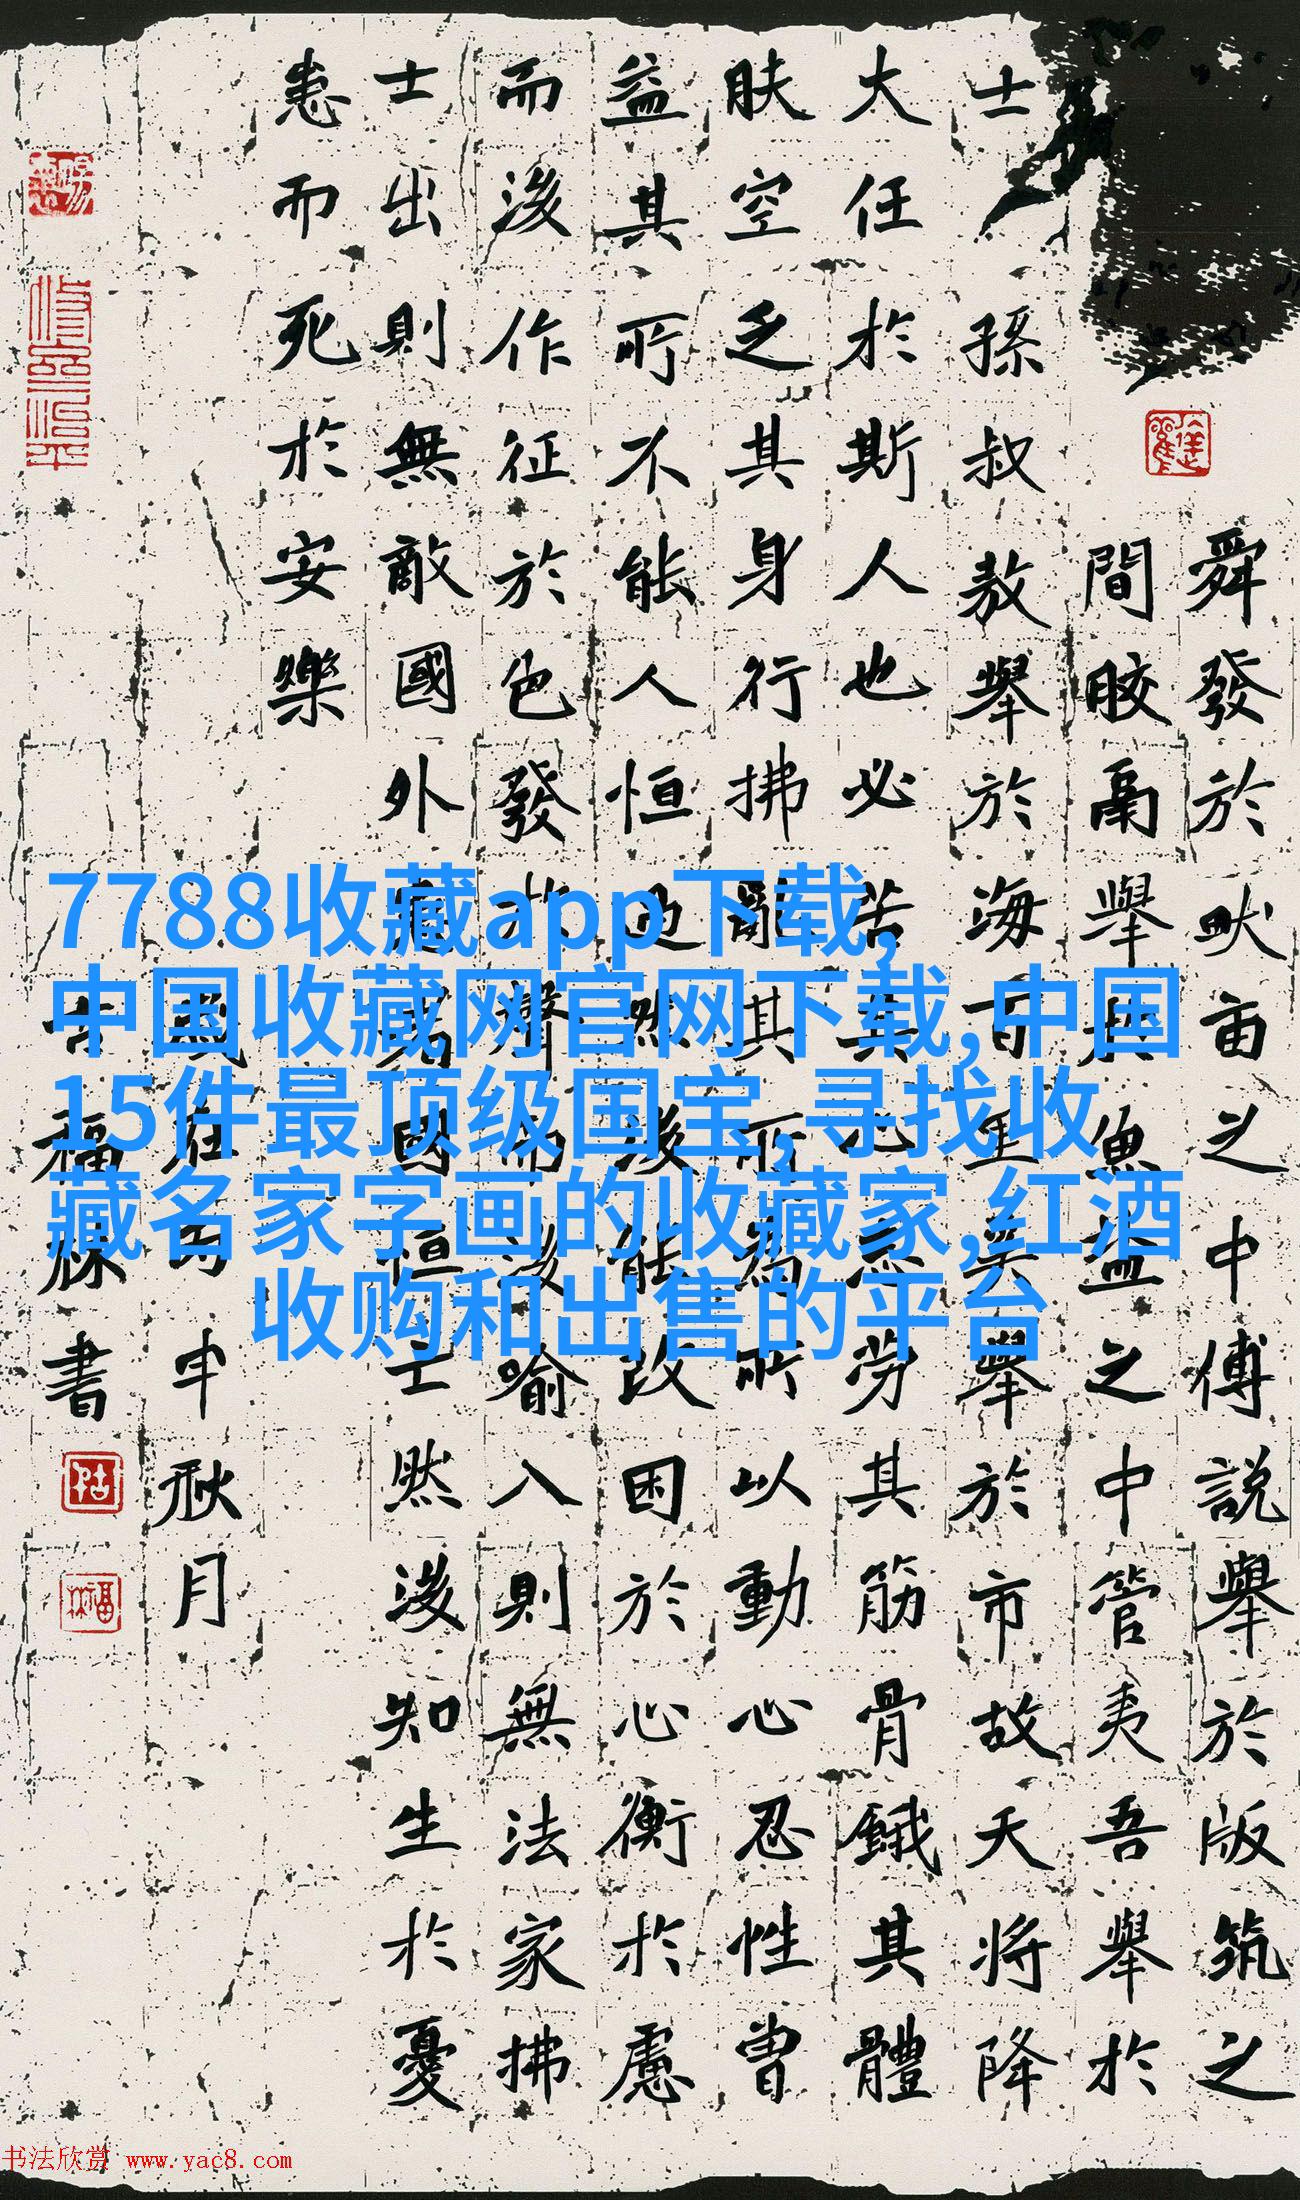 舜發於畎亩之中傅説舉於版筑之
間膠鬲舉於魚盐之中管夷吾舉於
士孫叔敖舉於海百里奚舉於市故天將降
大任於斯人也必苦其心志劳其筋骨餓其體
肤空乏其身行拂亂其所為所以動心忍性曾
益其所不能人恒过然後能改困於心衡於慮
而後作征於色發於聲而後喻入則無法家拂
士出則無敵國外患者國恒亡然後知生於憂
患而死於安樂
歲在丙申秋月
福林書
7788收藏app下载,
中国收藏网官网下载,中国
15件最顶级国宝,寻找收
藏名家字画的收藏家,红酒
收购和出售的平台
书法欣赏 www.yac8.com